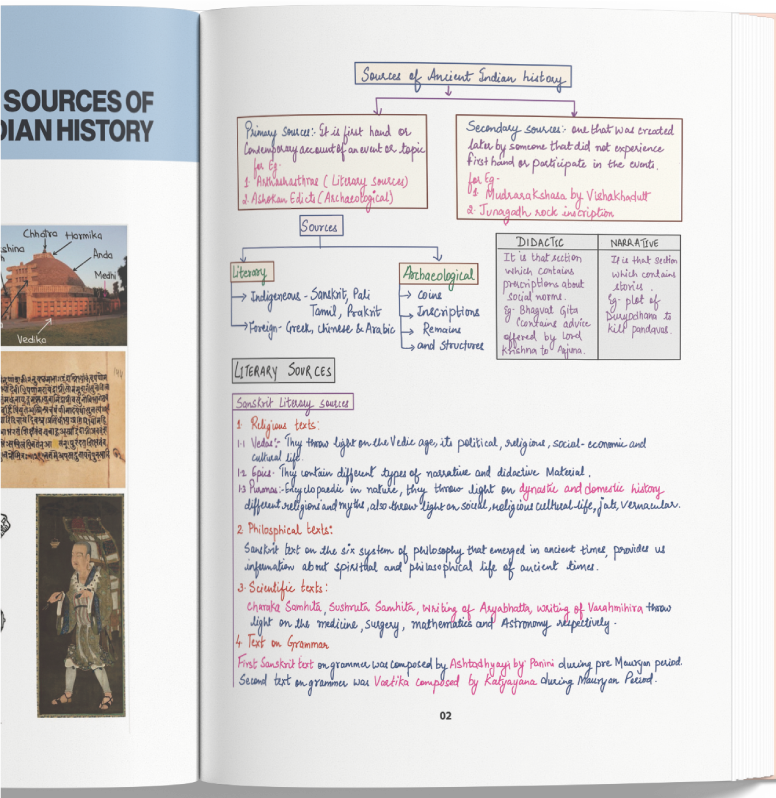 SOURCES OF
DIAN HISTORY
Chhatra
Harmika
shina
Anda
Medhi
Vedika
Sources of Ancient Indian history
Primary Sources:- It is first hand or
Contemporary account of an event or topic
for Eg-
1. Arthashasthras (Literary sources)
2. Ashokan Edicts (Archaeological)
Secondary sources:- one that was created
later by someone that did not experience
first hand or participate in the events.
for Eg-
1. Mudrarakshasa by Vishakhadutt
2. Junagadh rock inscription
Sources
Literary
Indigeneous - Sanskrit, Pali
Tamil, Prakrit
Foreign- Greek, Chinese & Arabic
Archaeological
Coins
Inscriptions
Remains
and structures
DIDACTIC
It is that section
which contains
prescriptions about
social norms.
Eg- Bhagvat Gita
contains advice
offered by Lord
Krishna to Arjuna.
NARRATIVE
It is that section
which contains
stories.
Eg- plot of
Duryodhana to
kill pandavas.
LITERARY SOURCES
Sanskrit Literary sources
1. Religious texts:
1.1 Vedas:- They throw light on the Vedic age, its political, religious, social-economic and
cultural life.
1.2 Epics- They contain different types of narrative and didactive Material.
1.3 Puranas:- Encyclopaedic in nature, they throw light on dynastic and domestic history
different religions and myths, also throw light on social, religious cultural-life, Jats, vernacular.
2. Philosphical texts:
Sanskrit text on the six system of philosophy that emerged in ancient times, provides us
information about spiritual and philosophical life of ancient times.
3. Scientific texts:
Charaka Samhita, Sushruta Samhita, writing of Aryabhatta, writing of Varahmihira throw
light on the medicine, surgery, mathematics and Astronomy respectively.
4. Text on Grammar
First Sanskrit text on grammer was composed by Ashtadhyayi by Panini during pre Mauryan period.
Second text on grammer was Vartika composed by Katyayana during Mauryan Period.
02